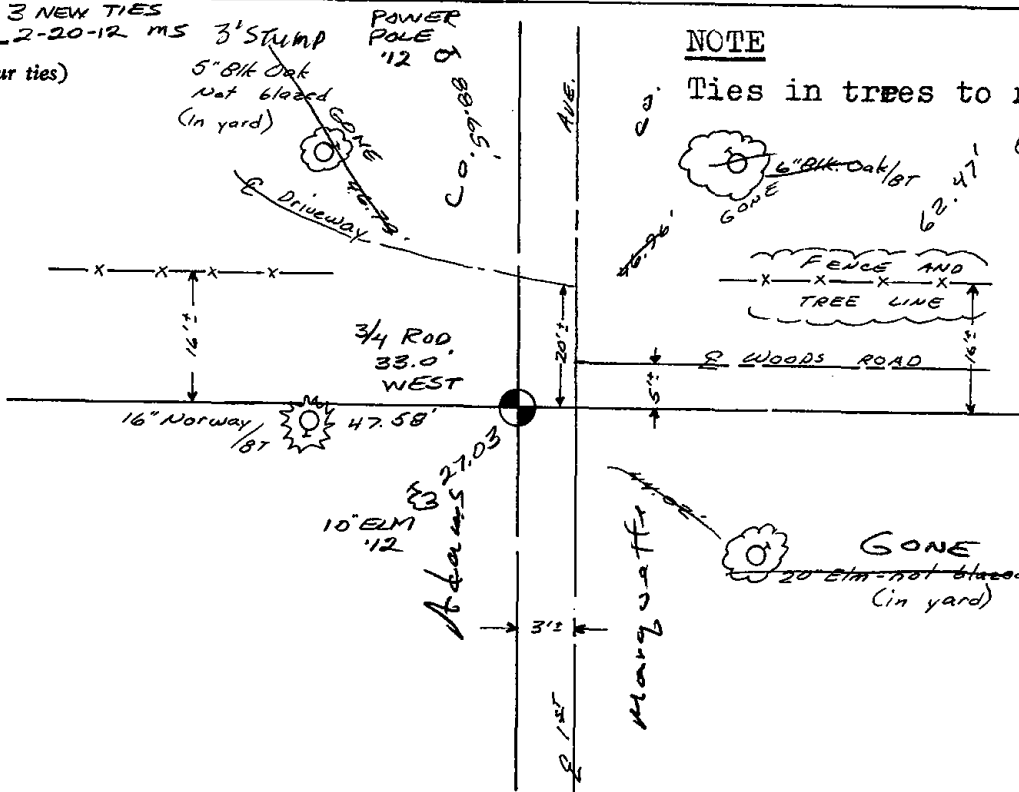 3 NEW TIES
2-20-12 MS
(our ties)
3' Stump
5" Blk Oak
Not blazed
(in yard)
GONE
46.79'
℄ Driveway
POWER
POLE
'12
88.65'
Co.
AVE.
Co.
NOTE
Ties in trees to
6" Blk. Oak/BT
GONE
62.47'
46.96'
FENCE AND
TREE LINE
16'±
20'±
16'±
3/4 ROD
33.0'
WEST
℄ WOODS ROAD
5'±
16" Norway
/BT
47.58'
27.03
10" ELM
'12
Adams
Marquette
GONE
20" Elm-not blazed
(in yard)
3'±
℄ 1ST